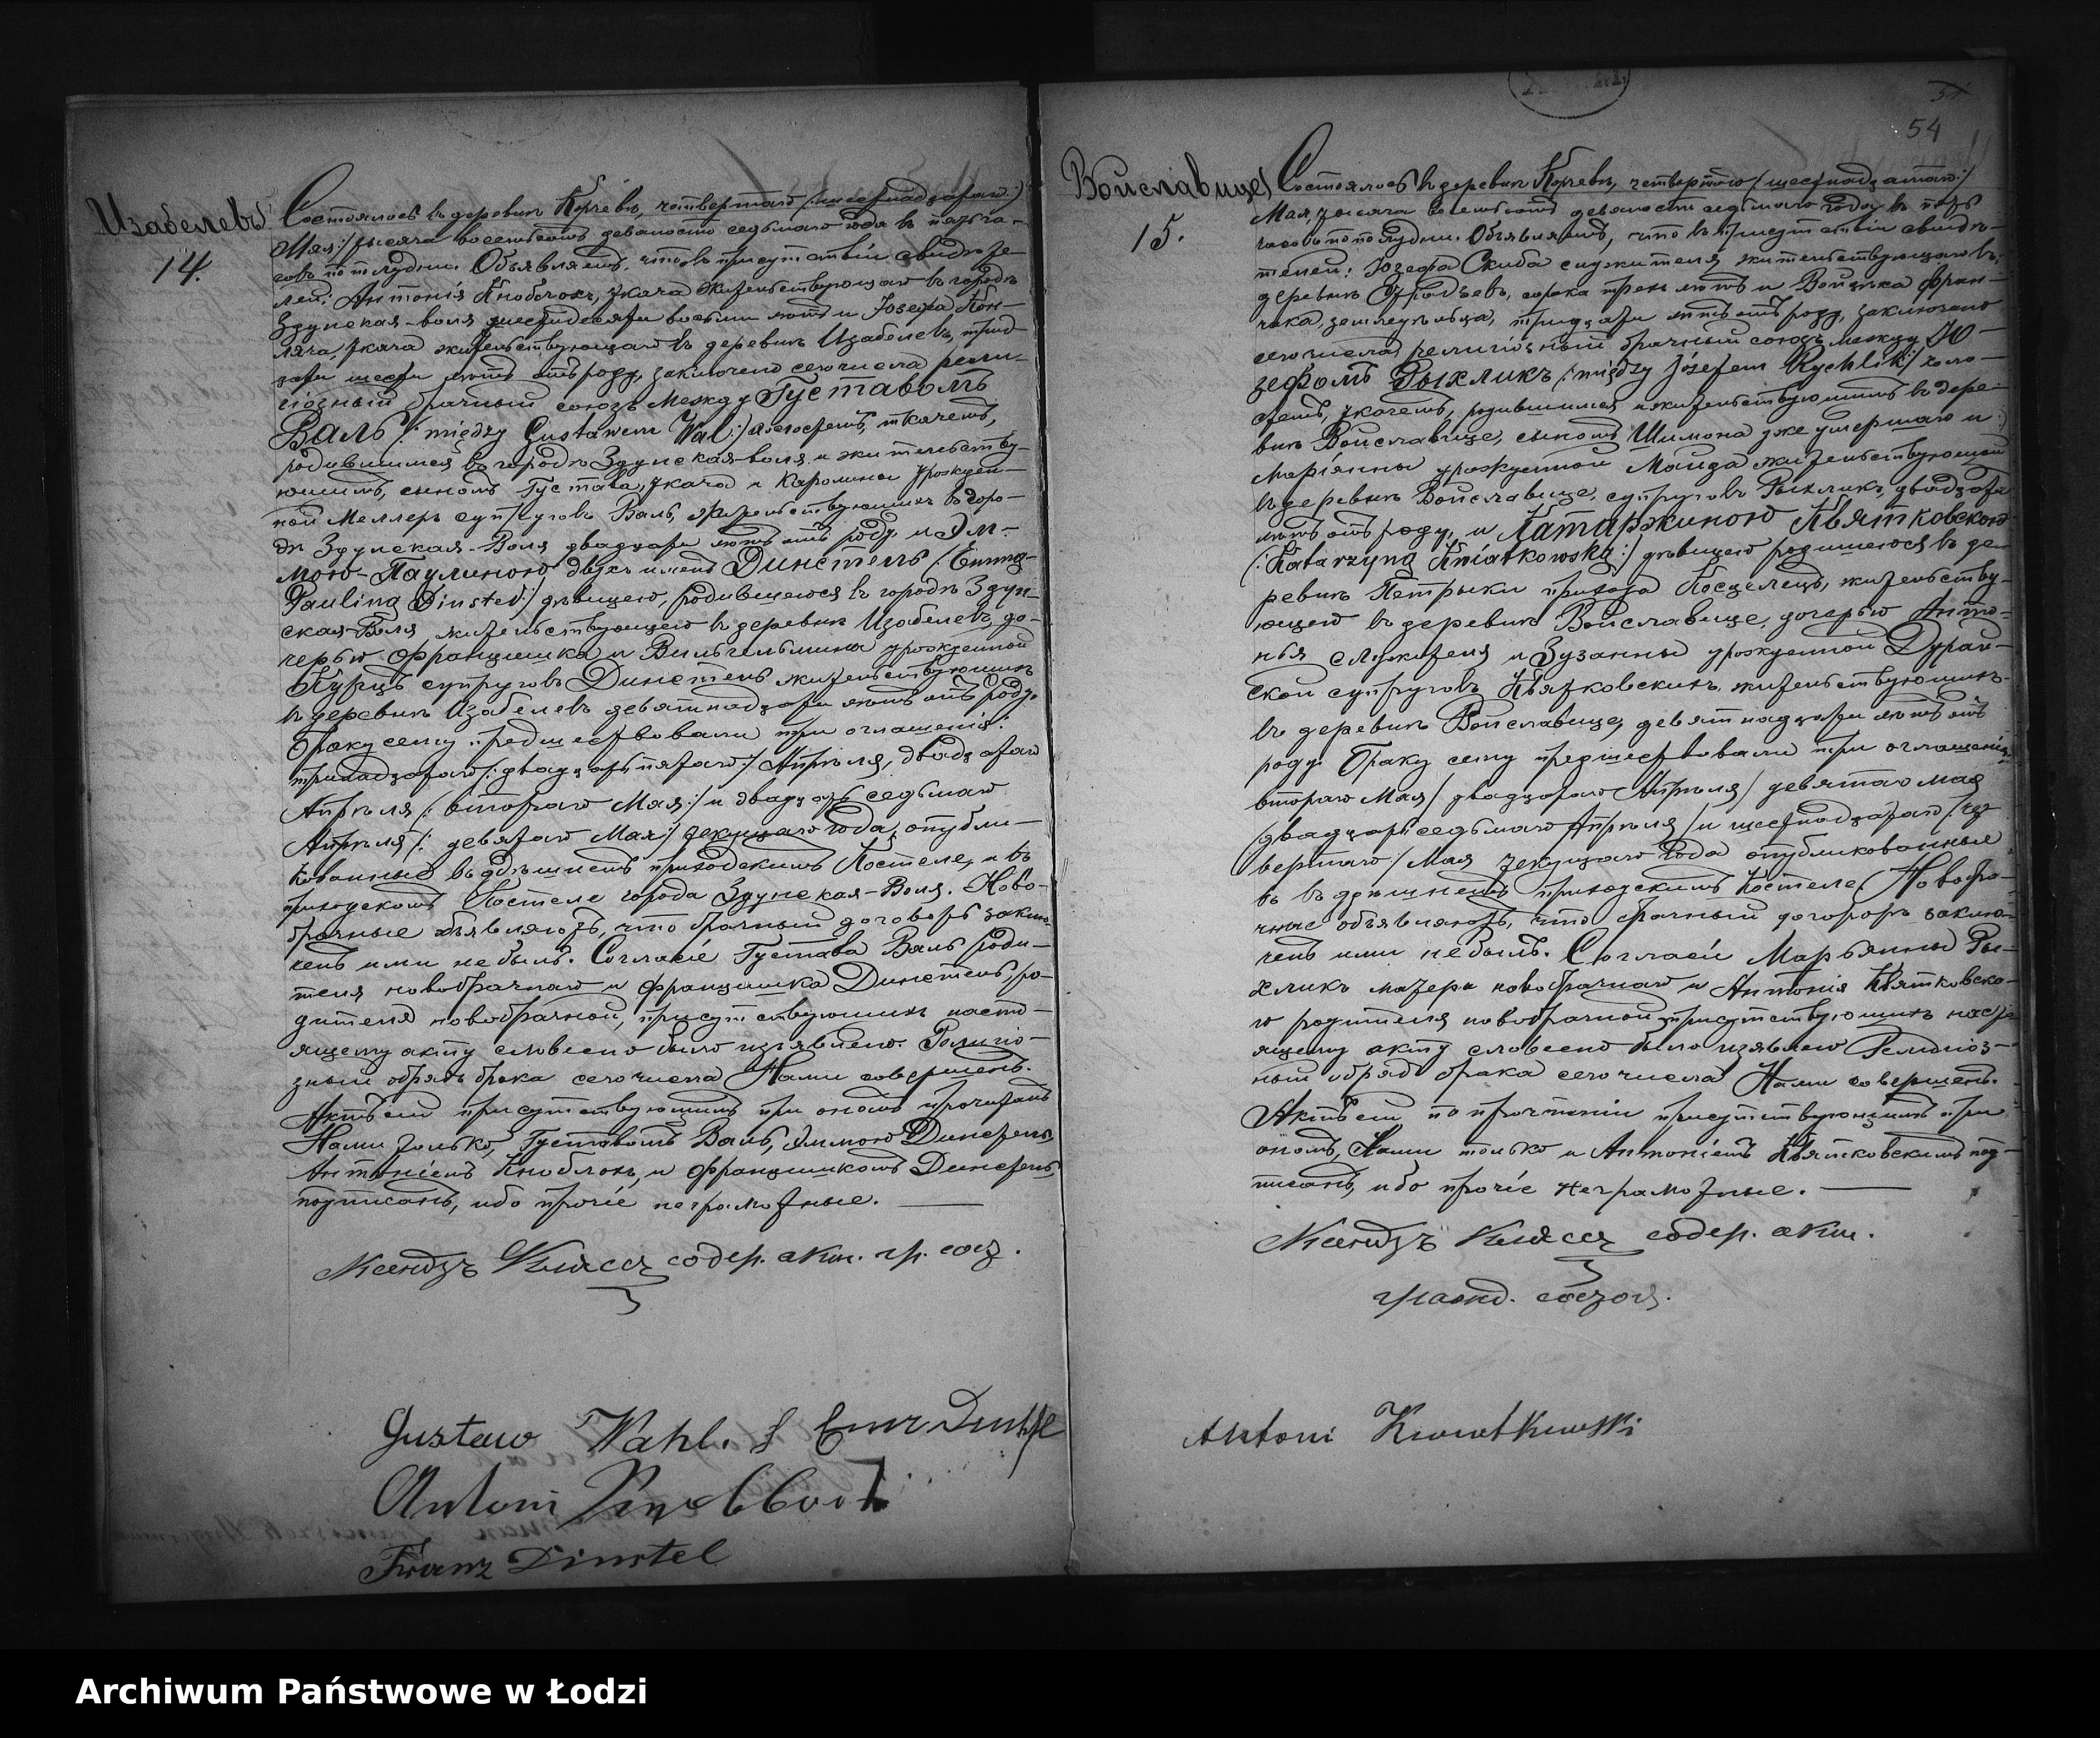 Изабелевъ
14.
Состоялось въ деревнѣ Корчевъ, четвертаго /:шестнадцатаго:/
Мая:/ тысяча восемьсотъ девяносто седьмаго года въ пять ча-
совъ по полудни. Объявляемъ, что въ присутствіи свидѣте-
лей: Антонія Кноблохъ, ткача жительствующаго въ городѣ
Здунская-воля шестьдесяти восьми лѣтъ и Іозефа
ткача жительствующаго въ деревнѣ Изабелевъ, трид-
цати шести лѣтъ отъ роду, заключенъ сего числа рели-
гіозный брачный союзъ между Густавомъ
Валь /:między Gustawem Wal:/ холостемъ, ткачемъ,
родившимся въ городѣ Здунская-воля и жительству-
ющимъ, сыномъ Густава, ткача и Каролины урожден-
ной Меллеръ супруговъ Валь, жительствующихъ въ горо-
дѣ Здунская-Воля двадцати лѣтъ отъ роду и Эм-
мою-Паулиною двухъ именъ Динстель /:Emmą-
Pauliną Dinstel:/ дѣвицею, родившеюся въ городѣ Здун-
ская-Воля, жительствующею въ деревнѣ Изабелевъ, до-
черью Францишка и Вильгельмины урожденной
Курцъ супруговъ Динстель жительствующихъ
въ деревнѣ Изабелевъ девятнадцати лѣтъ отъ роду.
Браку сему предшествовали три оглашенія:
тринадцатаго /:двадцать пятаго:/ Апрѣля, двадцатаго
Апрѣля /:втораго Мая:/ и двадцать седьмаго
Апрѣля /:девятаго Мая:/ текущаго года, опубли-
кованныя въ здѣшнемъ приходскимъ Костеле, и въ
приходскомъ Костеле города Здунская-Воля. Ново-
брачные объявляютъ, что брачный договоръ заклю-
ченъ ими не былъ. Согласіе Густава Валь роди-
теля новобрачнаго и Францишка Динстель, ро-
дителя новобрачной, присутствующихъ насто-
ящему акту словесно было изъявлено. Религіо-
зный обрядъ брака сего числа Нами совершенъ.
Актъ сей присутствующимъ при ономъ прочитанъ
Нами только, Густавомъ Валь, Эммою Динстель,
Антоніемъ Кноблохъ, и Францишкомъ Динстель,
подписанъ, ибо прочіе неграмотные.
Ксендзъ содер. акт. гр. сост.
Gustaw Wahl.
Antoni
Franz Dinstel
54
Войславице
15.
Состоялось въ деревнѣ Корчевъ, четвертаго /:шестнадцатаго:/
Мая, тысяча восемьсотъ девяносто седьмаго года въ пять
часовъ по полудни. Объявляемъ, что въ присутствіи свидѣ-
телей: Іозефа Скиба служителя, жительствующаго въ
деревнѣ сорока трехъ лѣтъ и Войцѣха Фран-
чака, земледѣльца, тридцати лѣтъ отъ роду, заключенъ
сего числа религіозный брачный союзъ между Ю-
зефомъ Рыхликъ /:między Józefem Rychlik:/ холо-
стемъ, ткачемъ, родившимся и жительствующимъ въ дере-
внѣ Войславице, сыномъ Шимона уже умершаго и
Маріянны урожденной Мойда жительствующей
въ деревнѣ Войславице, супруговъ Рыхликъ, двадцати
лѣтъ отъ роду, и Катаржиною Квятковскою
/:Katarzyną Kwiatkowską:/ дѣвицею родившеюся въ де-
ревнѣ Петрыки прихода жительству-
ющею въ деревнѣ Войславице, дочерью Анто-
нія служителя и Зузанны урожденной Дурай-
ской супруговъ Квятковскихъ жительствующихъ
въ деревнѣ Войславице, девятнадцати лѣтъ отъ
роду. Браку сему предшествовали три оглашенія:
втораго Мая / двадцатаго Апрѣля / девятаго Мая
/двадцать седьмаго Апрѣля / и шестнадцатаго /:чет-
вертаго / Мая текущаго года опубликованныя
въ здѣшнемъ приходскимъ Костеле. Новобра-
чные объявляютъ, что брачный договоръ заклю-
ченъ ими не былъ. Согласіи Марьянны Ры-
хликъ матери новобрачнаго и Антонія Квятковска-
го родителя новобрачной присутствующихъ насто-
ящему акту словесно было изявлено Религіоз-
ный обрядъ брака сего числа Нами совершенъ.
Актъ сей по прочтеніи присутствующимъ при
ономъ, Нами только и Антоніемъ Квятковскимъ под-
писанъ, ибо прочіе неграмотные.
Ксендзъ содер. акт.
гражд. состоя.
Antoni Kwiatkowski
Archiwum Państwowe w Łodzi